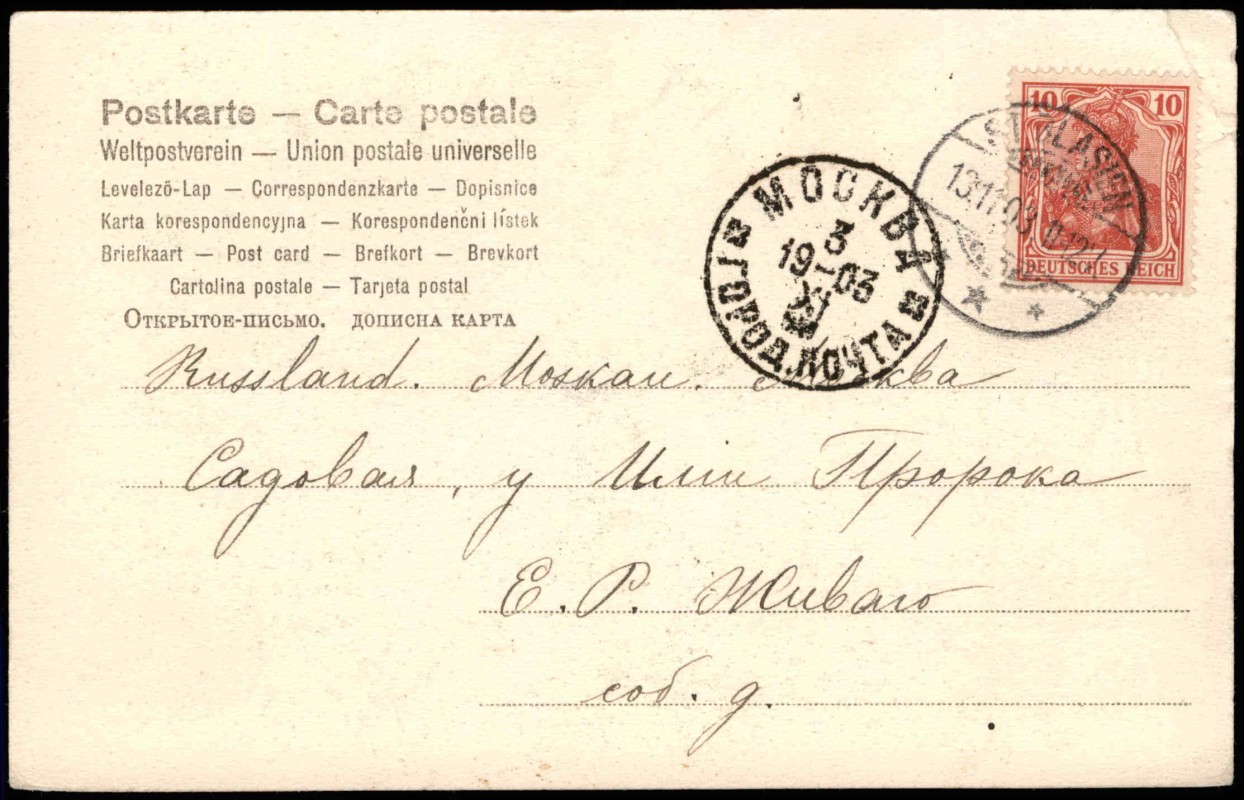 Postkarte — Carte postale
Weltpostverein — Union postale universelle
Levelező-Lap — Correspondenzkarte — Dopisnice
Karta korespondencyjna — Korespondenční lístek
Briefkaart — Post card — Brefkort — Brevkort
Cartolina postale — Tarjeta postal
Открытое-письмо. дописна карта
10 10
DEUTSCHES REICH
ST. BLASIEN
13.11.03. 11-12V.
МОСКВА
3
19-03
XI
ГОРОД.ПОЧТА
Russland. Moskau. Москва
Садовая, у Илии Пророка
Е. Р. Живаго
соб. д.